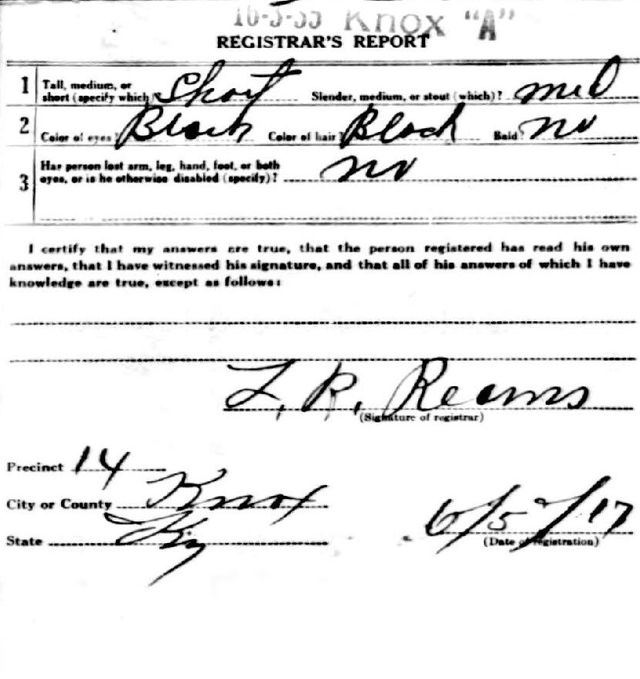 16-3-35 Knox "A"
REGISTRAR'S REPORT
1 Tall, medium, or short (specify which)? Short Slender, medium, or stout (which)? med
2 Color of eyes? Black Color of hair? Black Bald? no
3 Has person lost arm, leg, hand, foot, or both eyes, or is he otherwise disabled (specify)? no
I certify that my answers are true, that the person registered has read his own
answers, that I have witnessed his signature, and that all of his answers of which I have
knowledge are true, except as follows:
L. R. Reams
(Signature of registrar)
Precinct 14
City or County Knox
State Ky
6/5/17
(Date of registration)